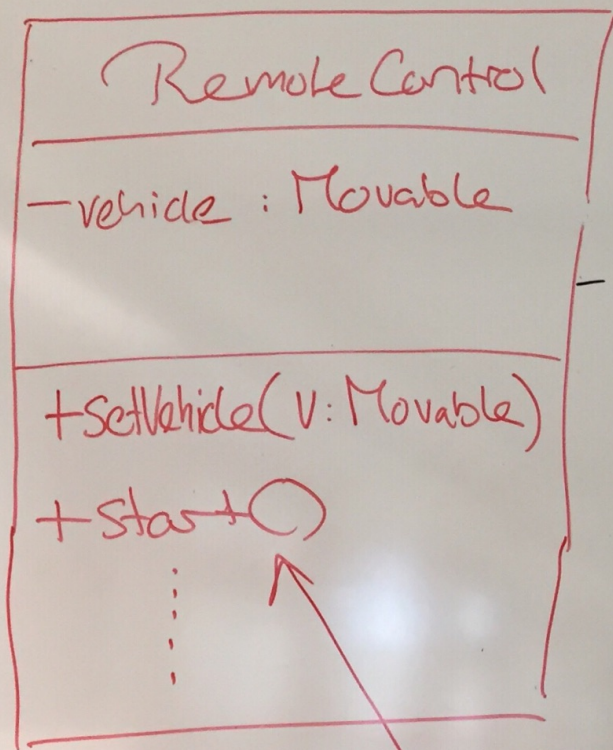 Remote Control
-vehicle : Movable
+SetVehicle(V: Movable)
+start()